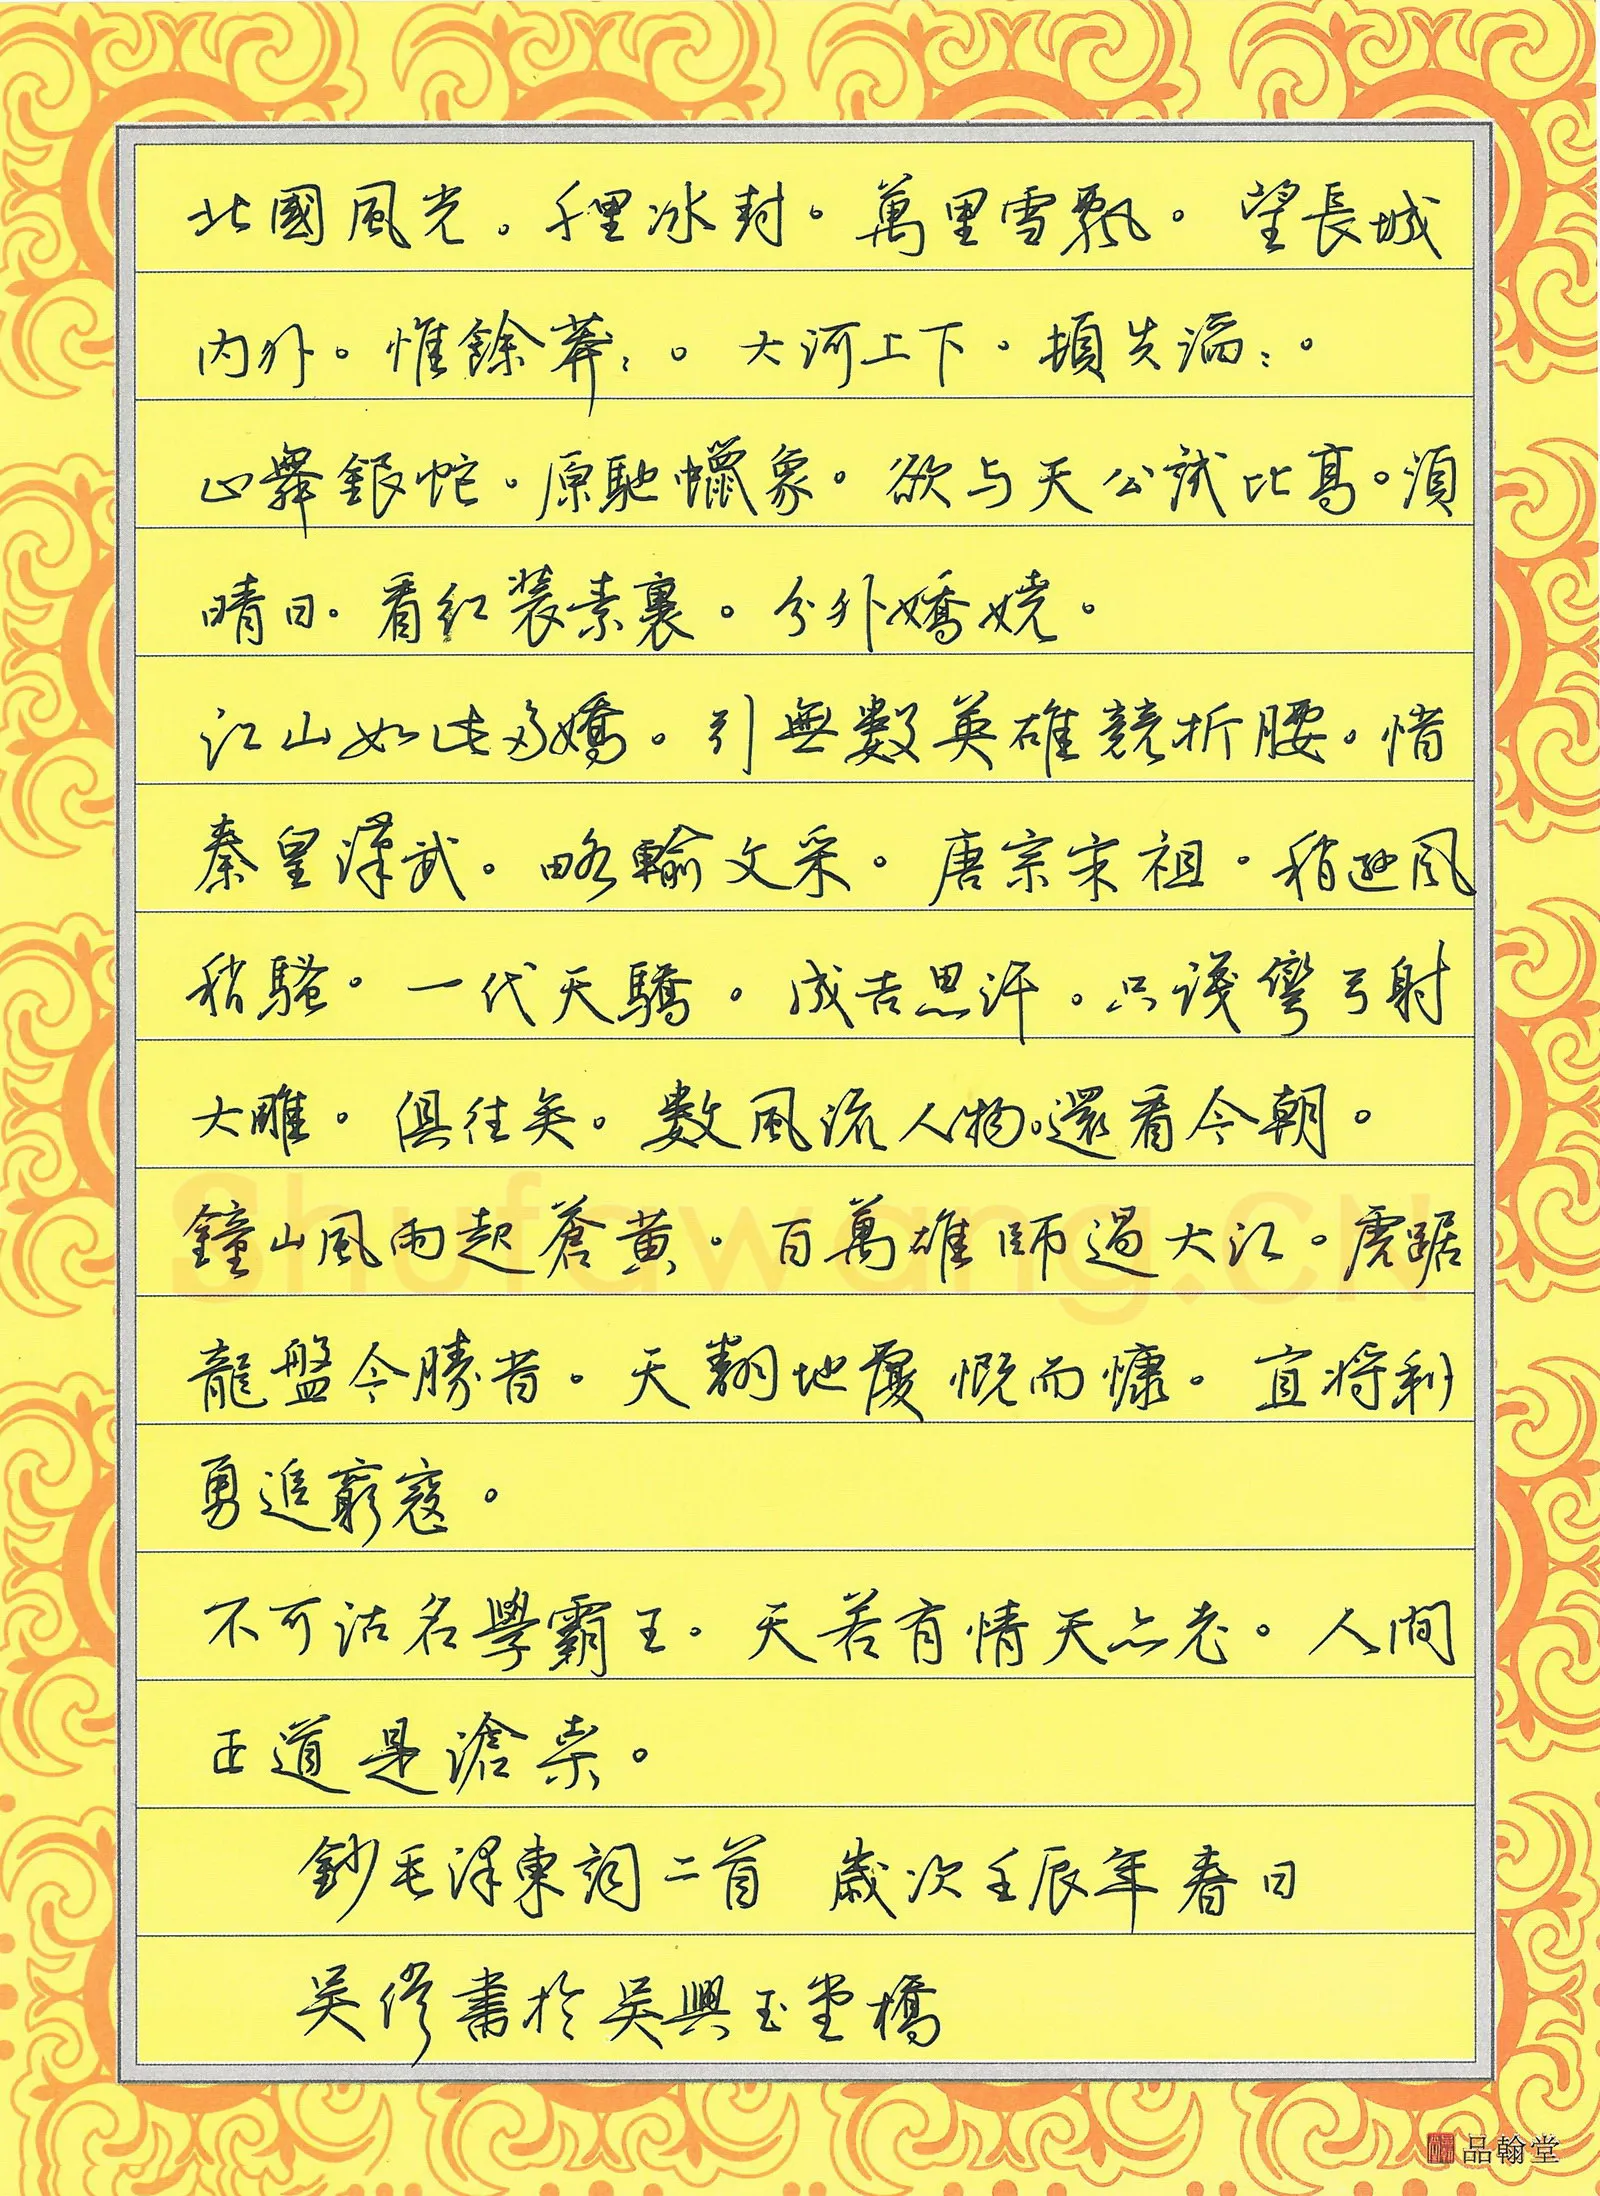 北國風光。千里冰封。萬里雪飄。望長城
內外。惟餘莽：。大河上下。頓失滔：。
山舞銀蛇。原馳蠟象。欲与天公試比高。須
晴日。看红裝素裹。分外嬌嬈。
江山如此多嬌。引無數英雄競折腰。惜
秦皇漢武。略輸文采。唐宗宋祖。稍遜風
稍騷。一代天驕。成吉思汗。只識彎弓射
大雕。俱往矣。數風流人物。還看今朝。
鐘山風雨起蒼黃。百萬雄師過大江。虎踞
龍盤今勝昔。天翻地覆慨而慷。宜將利
勇追窮寇。
不可沽名學霸王。天若有情天亦老。人間
正道是滄桒。
鈔毛澤東詞二首 歲次壬辰年春日
吴修書於吴興玉堂橋
Shufawang.CN
品翰堂